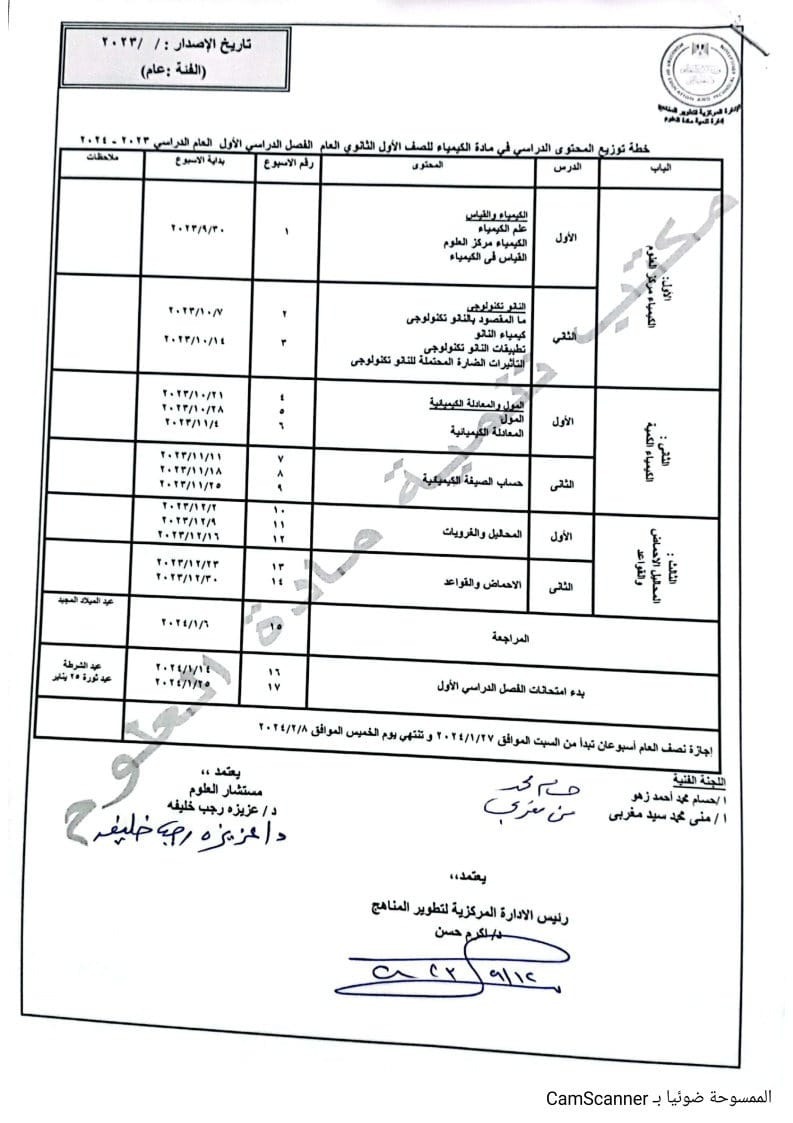 تاريخ الإصدار : / /٢٠٢٣
(الفئة :عام)
الإدارة المركزية لتطوير المناهج
إدارة تنمية مادة العلوم
خطة توزيع المحتوى الدراسي في مادة الكيمياء للصف الأول الثانوي العام الفصل الدراسي الأول العام الدراسي ٢٠٢٣ - ٢٠٢٤
الباب الدرس المحتوى رقم الاسبوع بداية الاسبوع ملاحظات
الأول:
الكيمياء مركز العلوم
الأول
الكيمياء والقياس
علم الكيمياء
الكيمياء مركز العلوم
القياس فى الكيمياء
١ ٢٠٢٣/٩/٣٠
الثاني
النانو تكنولوجى
ما المقصود بالنانو تكنولوجى
كيمياء النانو
تطبيقات النانو تكنولوجى
التأثيرات الضارة المحتملة للنانو تكنولوجى
٢ ٢٠٢٣/١٠/٧
٣ ٢٠٢٣/١٠/١٤
الثانى :
الكيمياء الكمية
الأول
المول والمعادلة الكيميائية
المول
المعادلة الكيميائية
٤ ٢٠٢٣/١٠/٢١
٥ ٢٠٢٣/١٠/٢٨
٦ ٢٠٢٣/١١/٤
الثانى
حساب الصيغة الكيميائية
٧ ٢٠٢٣/١١/١١
٨ ٢٠٢٣/١١/١٨
٩ ٢٠٢٣/١١/٢٥
الثالث :
المحاليل الاحماض
والقواعد
الأول
المحاليل والغرويات
١٠ ٢٠٢٣/١٢/٢
١١ ٢٠٢٣/١٢/٩
١٢ ٢٠٢٣/١٢/١٦
الثانى
الاحماض والقواعد
١٣ ٢٠٢٣/١٢/٢٣
١٤ ٢٠٢٣/١٢/٣٠
المراجعة ١٥ ٢٠٢٤/١/٦ عيد الميلاد المجيد
بدء امتحانات الفصل الدراسي الأول
١٦ ٢٠٢٤/١/١٤ عيد الشرطة
١٧ ٢٠٢٤/١/٢٥ عيد ثورة ٢٥ يناير
إجازة نصف العام أسبوعان تبدأ من السبت الموافق ٢٠٢٤/١/٢٧ و تنتهي يوم الخميس الموافق ٢٠٢٤/٢/٨
مكتب تنمية مادة العلوم
اللجنة الفنية
ا/حسام محمد أحمد زهو
ا/ منى محمد سيد مغربى
حسام محمد
يعتمد ،،
مستشار العلوم
د/ عزيزه رجب خليفه
د/عزيزه رجب خليفه
يعتمد،،
رئيس الادارة المركزية لتطوير المناهج
د/اكرم حسن
الممسوحة ضوئيا بـ CamScanner